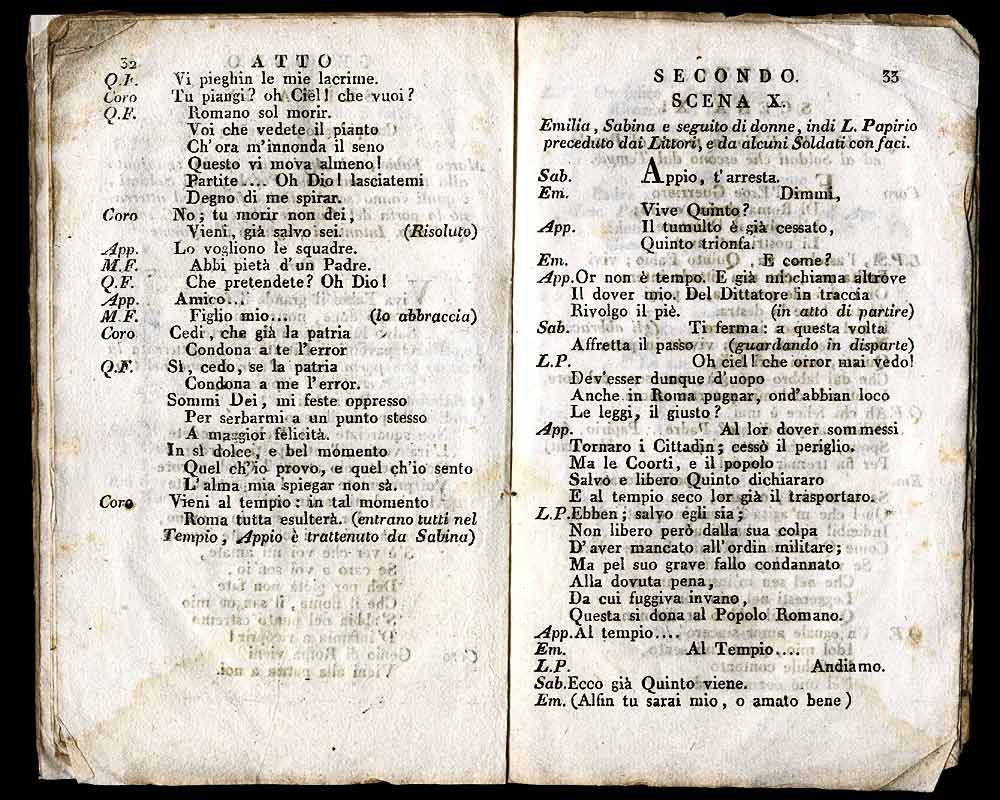 32 ATTO
Q.F. Vi pieghin le mie lacrime.
Coro Tu piangi? oh Ciel! che vuoi?
Q.F. Romano sol morir.
Voi che vedete il pianto
Ch'ora m'innonda il seno
Questo vi mova almeno!
Partite.... Oh Dio! lasciatemi
Degno di me spirar.
Coro No; tu morir non dei,
Vieni, già salvo sei. (Risoluto)
App. Lo vogliono le squadre.
M.F. Abbi pietà d'un Padre.
Q.F. Che pretendete? Oh Dio!
App. Amico...
M.F. Figlio mio... (lo abbraccia)
Coro Cedi, che già la patria
Condona a te l'error
Q.F. Sì, cedo, se la patria
Condona a me l'error.
Sommi Dei, mi feste oppresso
Per serbarmi a un punto stesso
A maggior felicità.
In sì dolce, e bel momento
Quel ch'io provo, e quel ch'io sento
L'alma mia spiegar non sà.
Coro Vieni al tempio: in tal momento
Roma tutta esulterà. (entrano tutti nel
Tempio, Appio è trattenuto da Sabina)
SECONDO. 33
SCENA X.
Emilia, Sabina e seguito di donne, indi L. Papirio
preceduto dai Littori, e da alcuni Soldati con faci.
Sab. Appio, t'arresta.
Em. Dimmi,
Vive Quinto?
App. Il tumulto è già cessato,
Quinto trionfa.
Em. E come?
App. Or non è tempo. E già mi chiama altrove
Il dover mio. Del Dittatore in traccia
Rivolgo il piè. (in atto di partire)
Sab. Ti ferma: a questa volta
Affretta il passo (guardando in disparte)
L.P. Oh ciel! che orror mai vedo!
Dev'esser dunque d'uopo
Anche in Roma pugnar, ond'abbian loco
Le leggi, il giusto?
App. Al lor dover sommessi
Tornaro i Cittadin; cessò il periglio.
Ma le Coorti, e il popolo
Salvo e libero Quinto dichiararo
E al tempio seco lor già il trasportaro.
L.P. Ebben; salvo egli sia;
Non libero però dalla sua colpa
D'aver mancato all'ordin militare;
Ma pel suo grave fallo condannato
Alla dovuta pena,
Da cui fuggiva invano,
Questa si dona al Popolo Romano.
App. Al tempio....
Em. Al Tempio....
L.P. Andiamo.
Sab. Ecco già Quinto viene.
Em. (Alfin tu sarai mio, o amato bene)